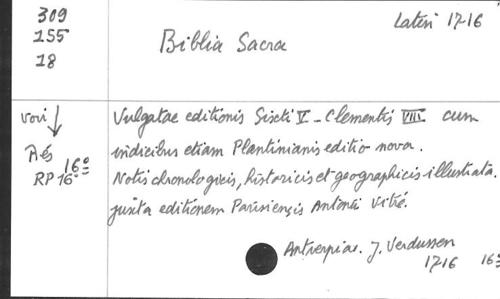 309
155
18
Latin 1716
Biblia Sacra
voir ↓
Rés
16º
RP 16º
Vulgatae editionis Sixti V - Clementis VIII. cum
indicibus etiam Plantinianis editio nova.
Notis chronologicis, historicis et geographicis illustrata.
juxta editionem Parisiensis Antonii Vitré.
Antverpiae. J. Verdussen
1716 16º